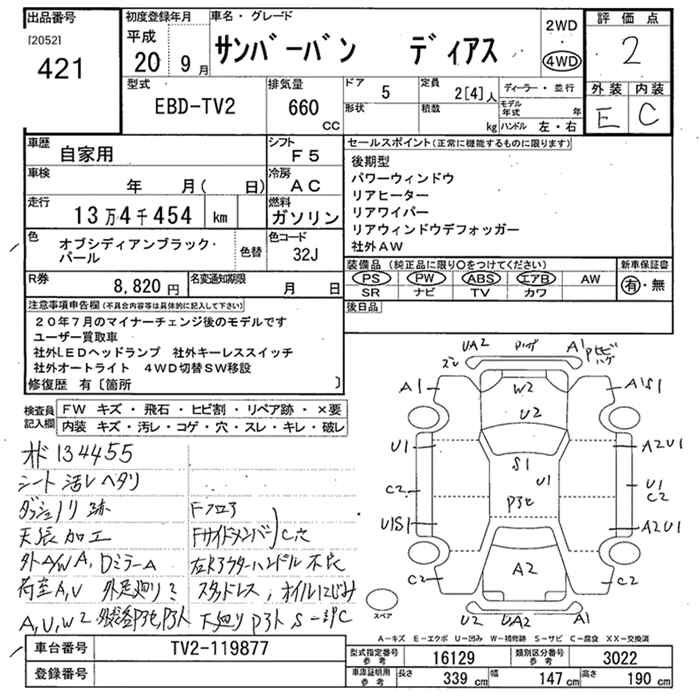 出品番号
[2052]
421
初度登録年月
平成
20 9月
車名・グレード
サンバーバン ディアス
2WD
4WD
評価点
2
外装 内装
E C
型式
EBD-TV2
排気量
660
CC
ドア
5
形状
定員
2[4]人
積数
kg
ディーラー・並行
モデル年式 年
ハンドル 左・右
車歴
自家用
シフト
F5
車検
年 月( 日)
冷房
AC
走行
13万4千454 km
燃料
ガソリン
色
オブシディアンブラック・パール
色替
色コード
32J
R券
8,820円
名変通知期限
月 日
セールスポイント(正常に機能するものに限ります)
後期型
パワーウィンドウ
リアヒーター
リアワイパー
リアウィンドウデフォッガー
社外AW
装備品(純正品に限り○をつけてください)
PS PW ABS エアB AW
SR ナビ TV カワ
新車保証書
有・無
後日品
注意事項申告欄(不具合内容等は具体的に記入して下さい)
20年7月のマイナーチェンジ後のモデルです
ユーザー買取車
社外LEDヘッドランプ 社外キーレススイッチ
社外オートライト 4WD切替SW移設
修復歴 有〔箇所 〕
検査員記入欄
FW キズ・飛石・ヒビ割・リペア跡・×要
内装 キズ・汚レ・コゲ・穴・スレ・キレ・破レ
134455
シート 汚レ ヘタリ
ダッシュノリ跡
天張加工
外A/W A, DミラーA
荷室A,U
A,U,W2
Fフロア
FサイドメンバーC穴
スタッドレス, オイルにじみ
下廻りP3ト S一部C
UA2
ズレ
A1
A1
W2
U2
A1S1
U1
S1
U1
A2U1
C2
U1
C2
U1S1
A2U1
C2
A2
C2
U2
UA2
A1
スペア
A-キズ E-エクボ U-凹み W-補修跡 S-サビ C-腐食 XX-交換済
車台番号
TV2-119877
登録番号
型式指定番号 参考
16129
類別区分番号 参考
3022
車庫証明用 参考
長さ 339 cm
幅 147 cm
高さ 190 cm